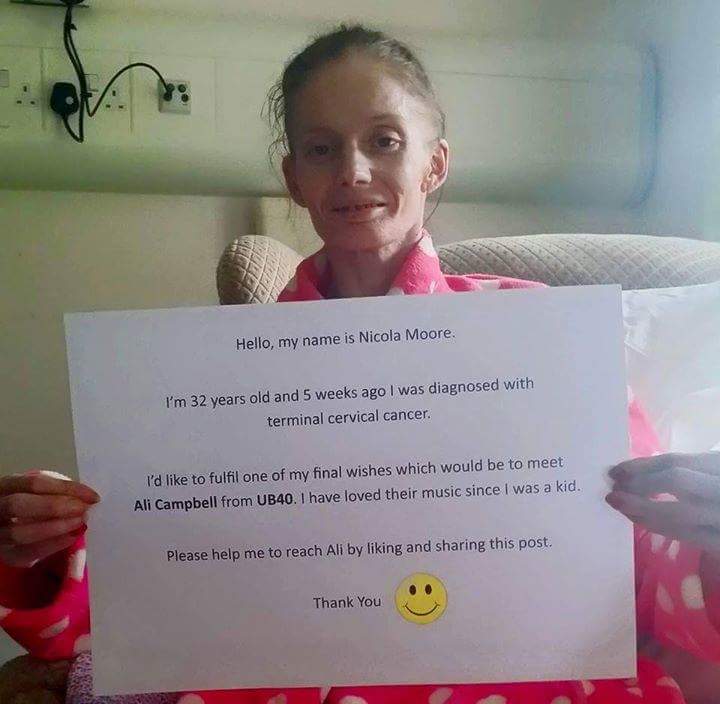 Hello, my name is Nicola Moore.
I'm 32 years old and 5 weeks ago I was diagnosed with
terminal cervical cancer.
I'd like to fulfil one of my final wishes which would be to meet
Ali Campbell from UB40. I have loved their music since I was a kid.
Please help me to reach Ali by liking and sharing this post.
Thank You